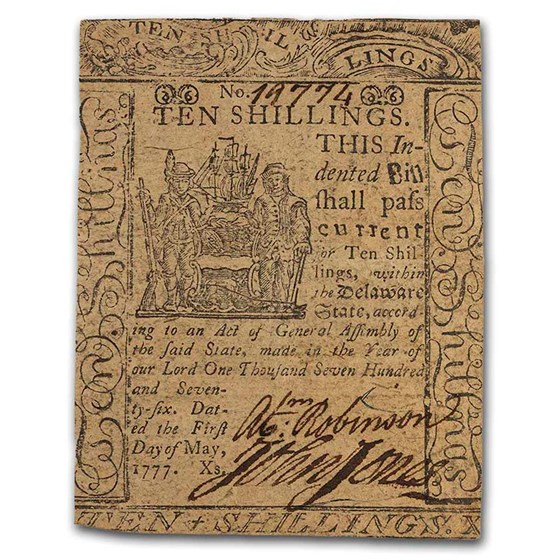 TEN SHIL
LINGS
No. 19774
TEN SHILLINGS.
THIS In-
dented Bill
ſhall paſs
current
for Ten Shil-
lings, within
the Delaware
State, accord-
ing to an Act of General Aſſembly of
the ſaid State, made in the Year of
our Lord One Thouſand Seven Hundred
and Seven-
ty-ſix. Dat-
ed the Firſt
Day of May,
1777. Xs.
Robinson
John Jones
Shillings
Ten Shillings
TEN + SHILLINGS. X